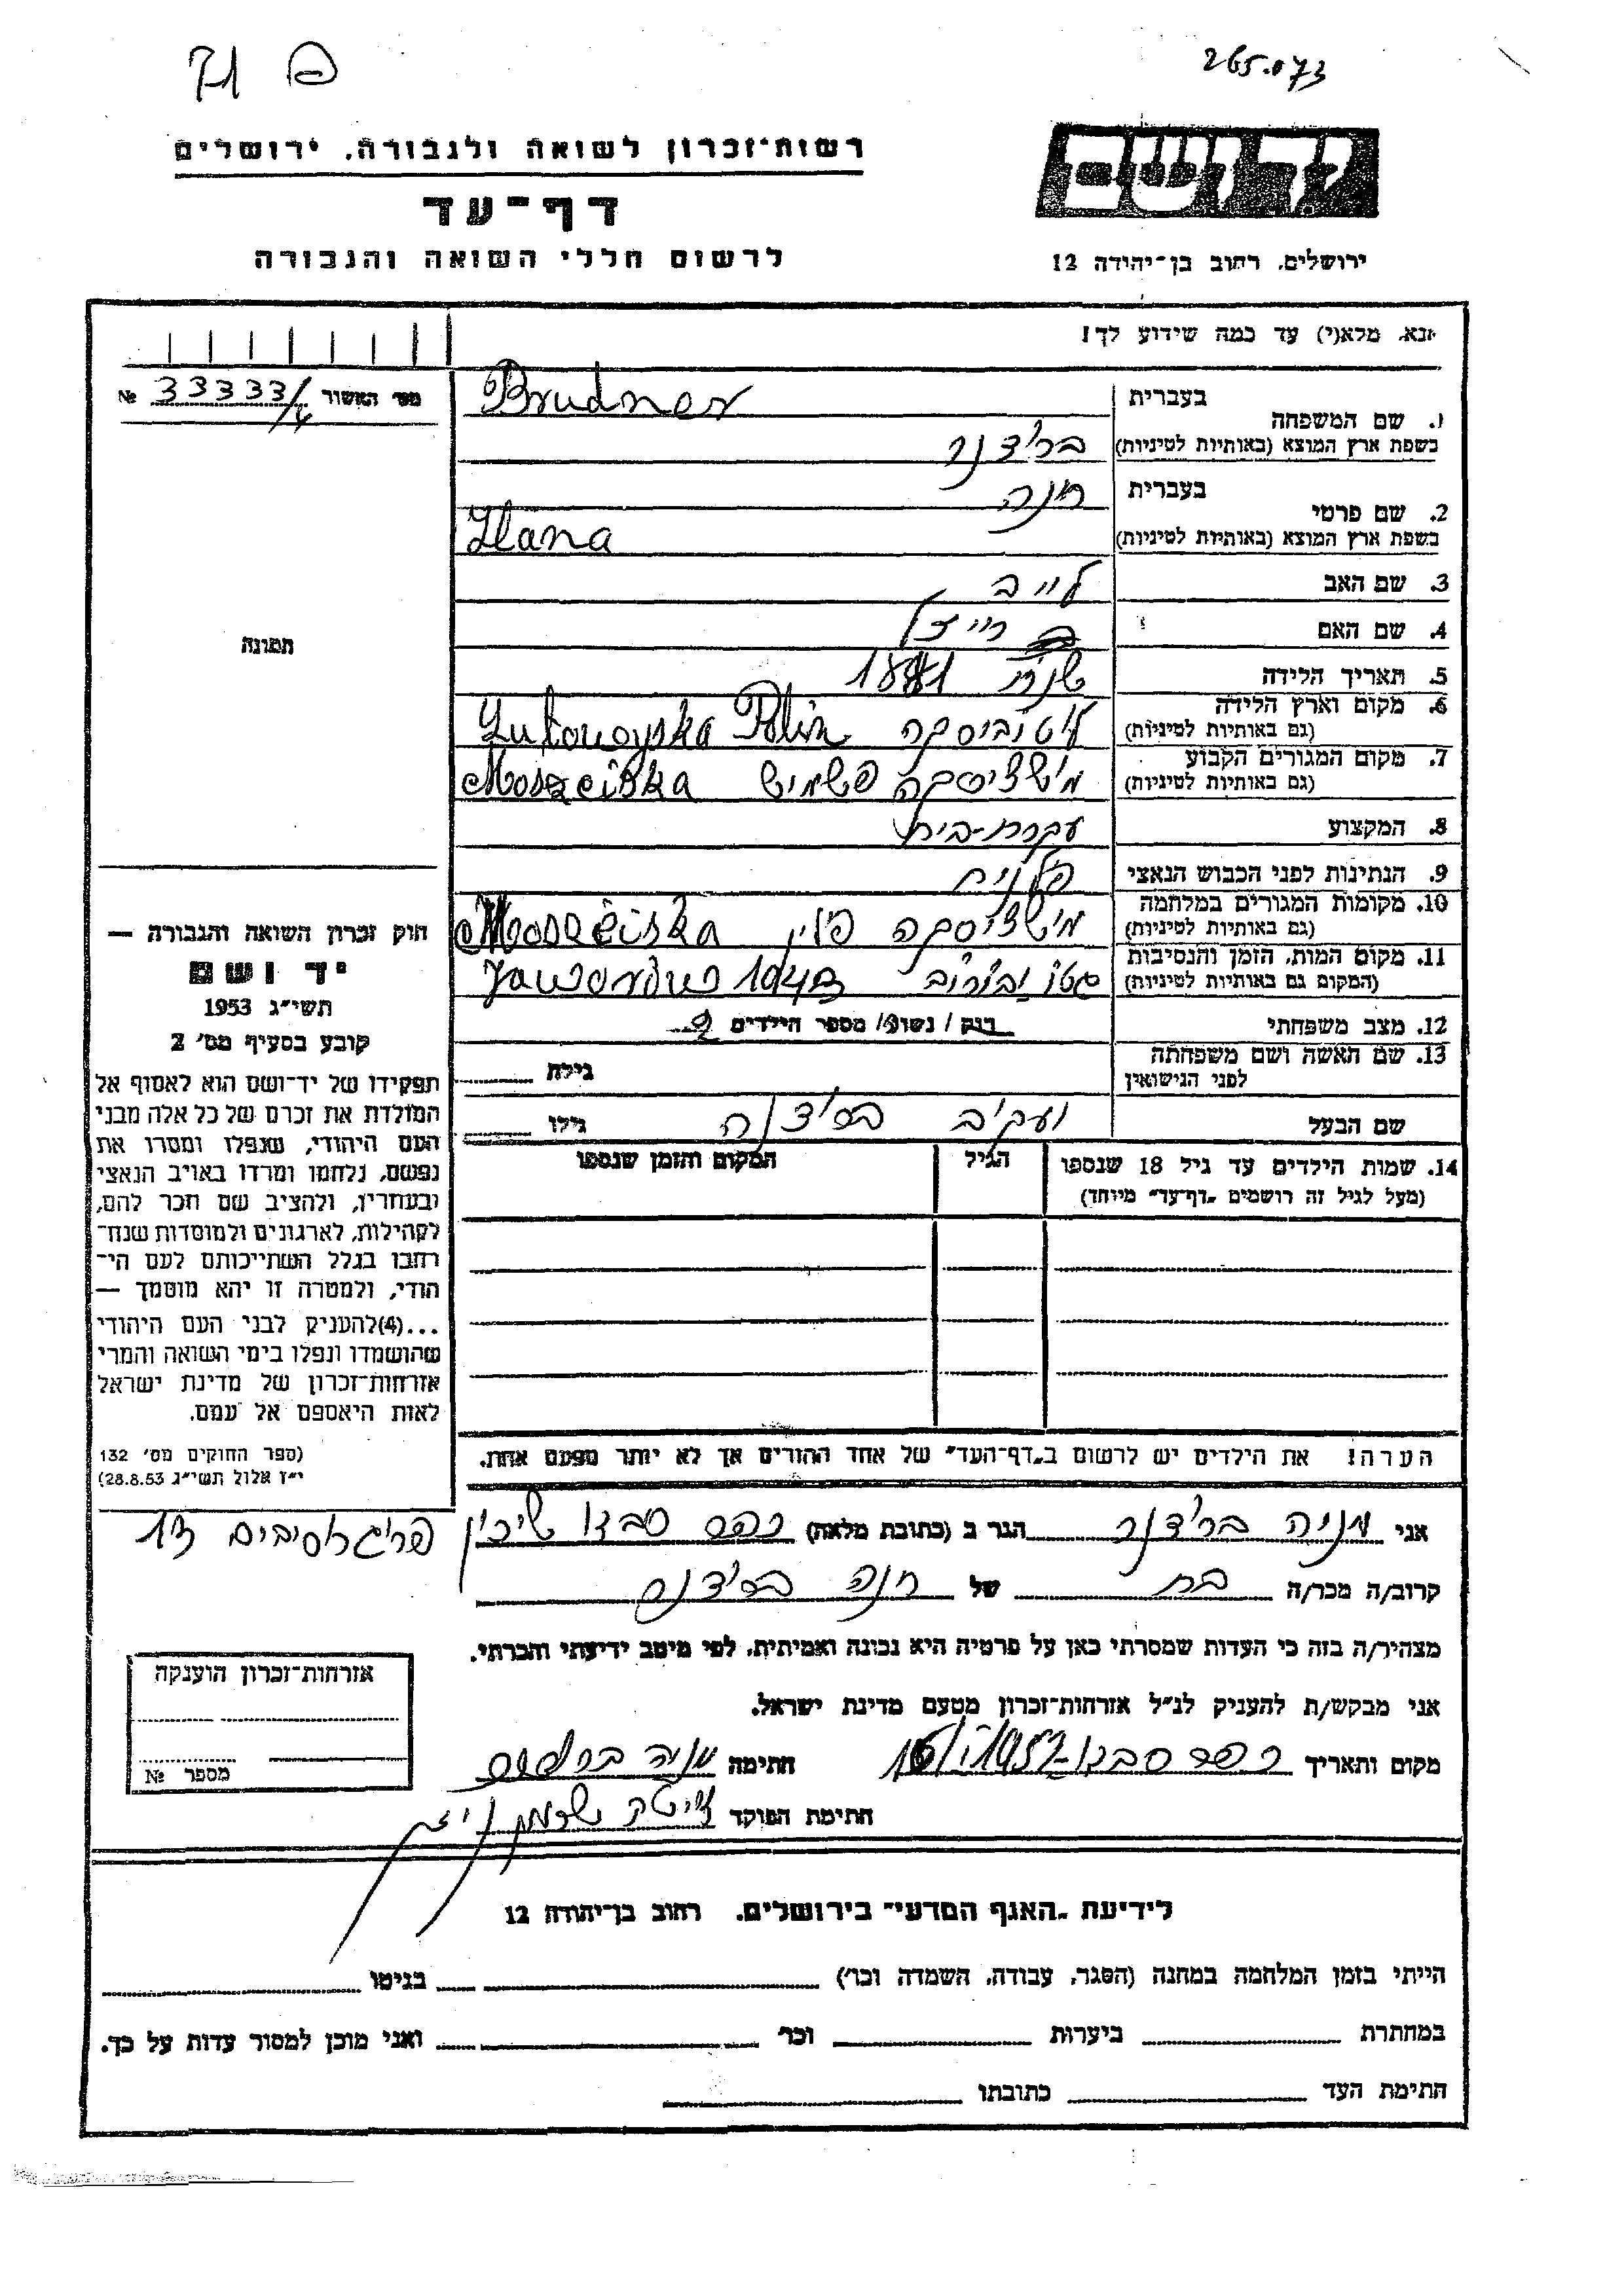 265.073
יד ושם
רשות־זכרון לשואה ולגבורה, ירושלים
דף־עד
לרשום חללי השואה והגבורה
ירושלים, רחוב בן־יהודה 12
נא, מלא(י) עד כמה שידוע לך!
מס׳ האשור № 33333/4
1. שם המשפחה
בעברית Brudner
בשפת ארץ המוצא (באותיות לטיניות) ברודנר
2. שם פרטי
בעברית חנה
בשפת ארץ המוצא (באותיות לטיניות) Hana
3. שם האב לייב
4. שם האם
5. תאריך הלידה שנת
6. מקום וארץ הלידה
(גם באותיות לטיניות)
7. מקום המגורים הקבוע
(גם באותיות לטיניות) Moszciska
8. המקצוע עקרת-בית
9. הנתינות לפני הכבוש הנאצי
10. מקומות המגורים במלחמה
(גם באותיות לטיניות) Moszciska
11. מקום המות, הזמן והנסיבות
(המקום גם באותיות לטיניות) גטו
12. מצב משפחתי רווק / נשוי / מספר הילדים
13. שם האשה ושם משפחתה
לפני הנישואין גילה
שם הבעל גילו
14. שמות הילדים עד גיל 18 שנספו הגיל המקום והזמן שנספו
(מעל לגיל זה רושמים „דף־עד״ מיוחד)
הערה! את הילדים יש לרשום ב„דף־העד״ של אחד ההורים אך לא יותר מפעם אחת.
תמונה
חוק זכרון השואה והגבורה —
יד ושם
תשי״ג 1953
קובע בסעיף מס׳ 2
תפקידו של יד־ושם הוא לאסוף אל
המולדת את זכרם של כל אלה מבני
העם היהודי, שנפלו ומסרו את
נפשם, נלחמו ומרדו באויב הנאצי
ובעוזריו, ולהציב שם וזכר להם,
לקהילות, לארגונים ולמוסדות שנח־
רבו בגלל השתייכותם לעם הי־
הודי, ולמטרה זו יהא מוסמך —
...(4) להעניק לבני העם היהודי
שהושמדו ונפלו בימי השואה והמרי
אזרחות־זכרון של מדינת ישראל
לאות היאספם אל עמם.
(ספר החוקים מס׳ 132
י״ז אלול תשי״ג 28.8.53)
אני ברודנר הגר ב (כתובת מלאה) כפר סבא שיכון
קרוב/ה מכר/ה בת של חנה ברודנר
מצהיר/ה בזה כי העדות שמסרתי כאן על פרטיה היא נכונה ואמיתית, לפי מיטב ידיעתי והכרתי.
אני מבקש/ת להעניק לנ״ל אזרחות־זכרון מטעם מדינת ישראל.
מקום ותאריך כפר סבא חתימה
חתימת הפוקד
אזרחות־זכרון הוענקה
מספר №
לידיעת „האגף המדעי״ בירושלים, רחוב בן־יהודה 12
הייתי בזמן המלחמה במחנה (הסגר, עבודה, השמדה וכו׳) בגיטו
במחתרת ביערות וכו׳ ואני מוכן למסור עדות על כך.
חתימת העד כתובתו